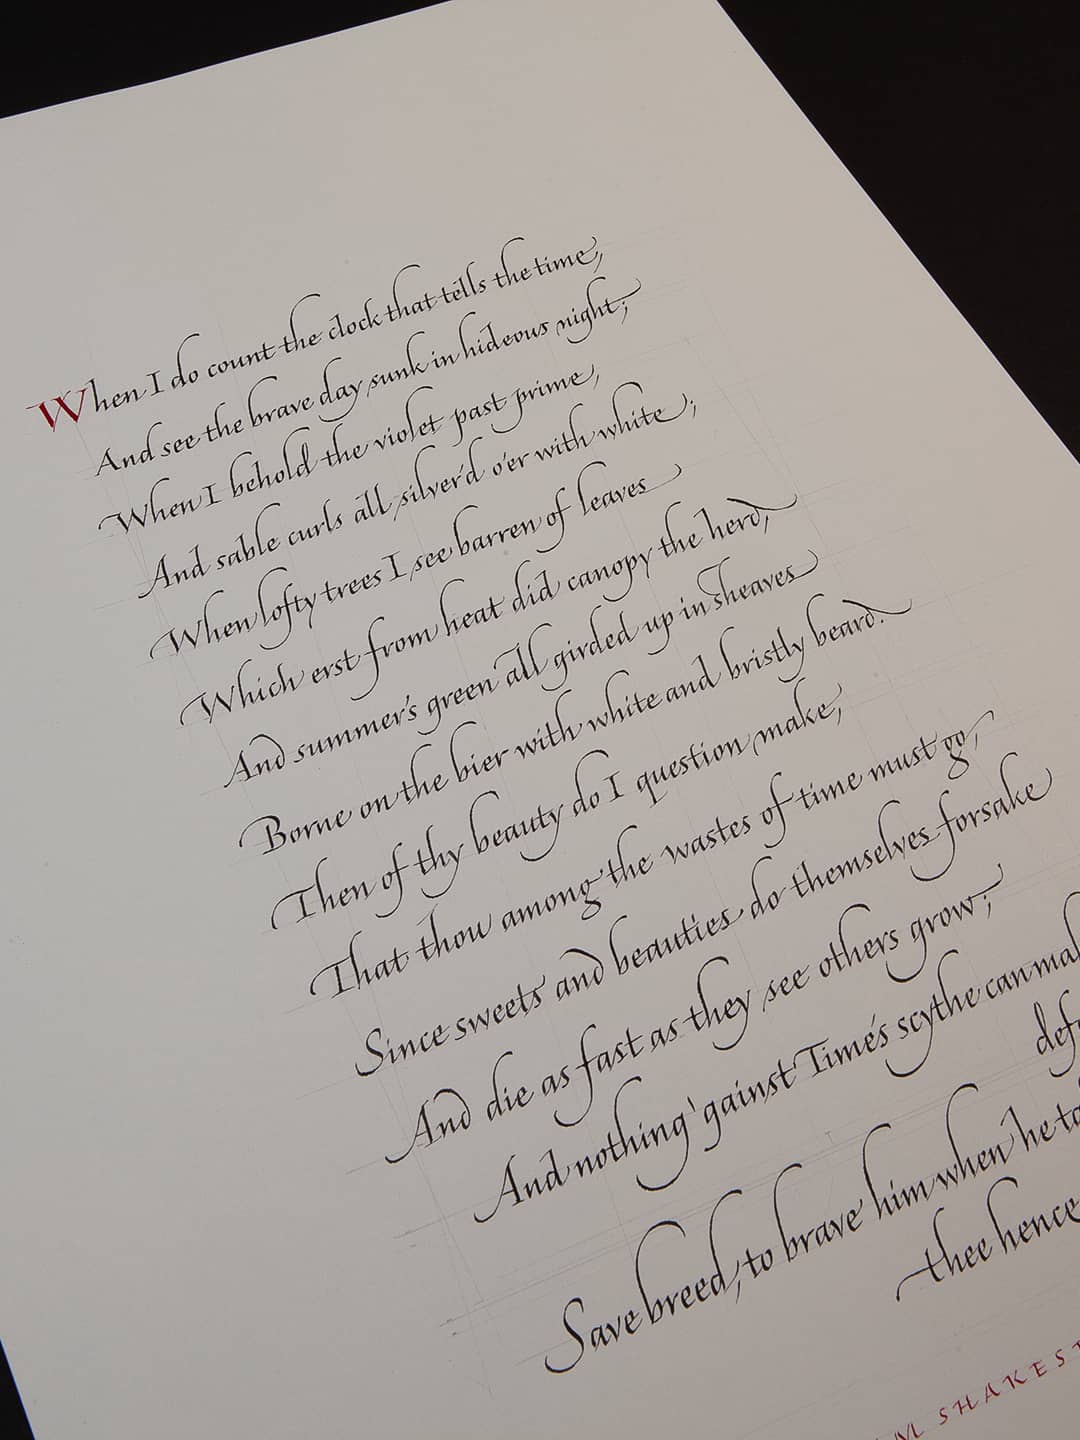 When I do count the clock that tells the time,
And see the brave day sunk in hideous night;
When I behold the violet past prime,
And sable curls all silver'd o'er with white;
When lofty trees I see barren of leaves
Which erst from heat did canopy the herd,
And summer's green all girded up in sheaves
Borne on the bier with white and bristly beard.
Then of thy beauty do I question make,
That thou among the wastes of time must go,
Since sweets and beauties do themselves forsake
And die as fast as they see others grow;
And nothing 'gainst Time's scythe can
Save breed, to brave him when he
thee hence